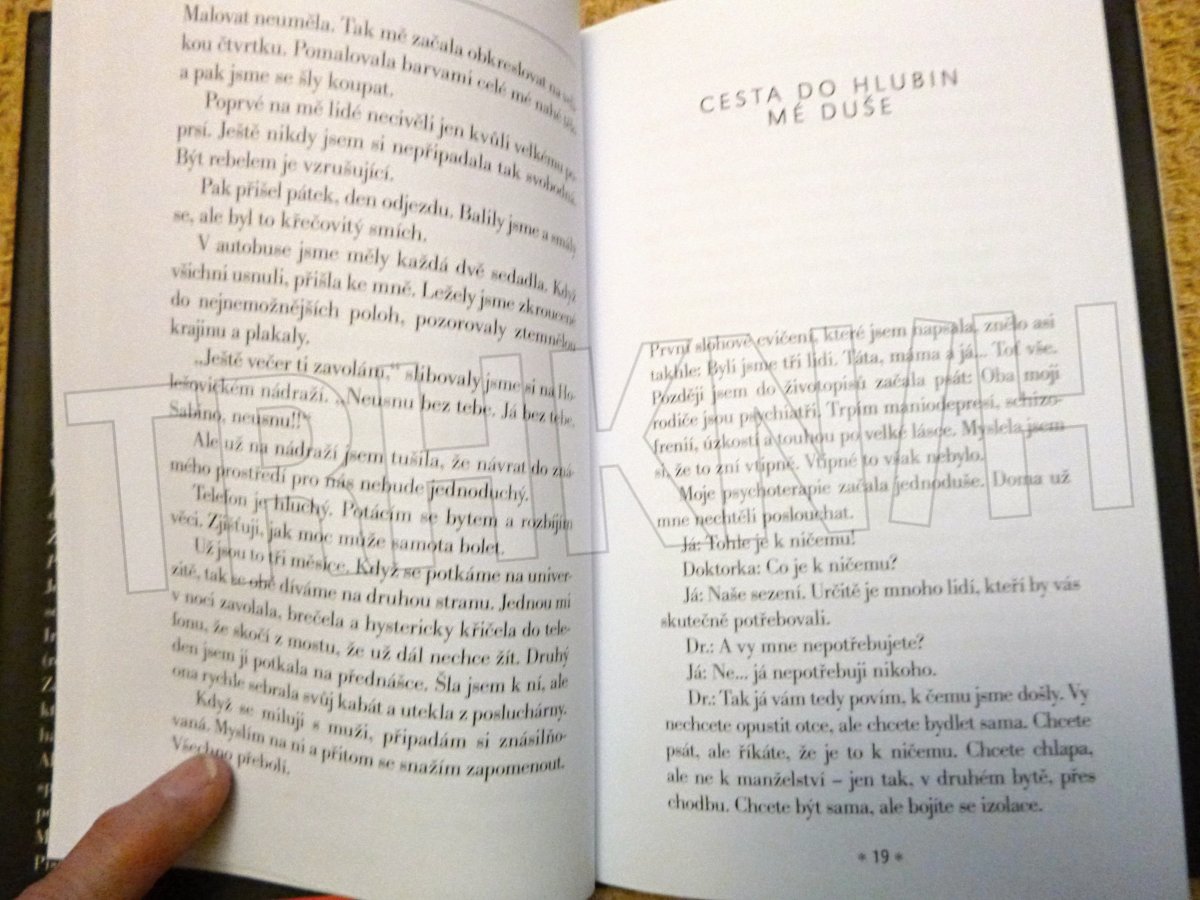 Malovat neuměla. Tak mě začala obkreslovat na vel-
kou čtvrtku. Pomalovala barvami celé mé nahé tělo
a pak jsme se šly koupat.
Poprvé na mě lidé necivěli jen kvůli velkému po-
prsí. Ještě nikdy jsem si nepřipadala tak svobodná.
Být rebelem je vzrušující.
Pak přišel pátek, den odjezdu. Balily jsme a smály
se, ale byl to křečovitý smích.
V autobuse jsme měly každá dvě sedadla. Když
všichni usnuli, přišla ke mně. Ležely jsme zkroucené
do nejnemožnějších poloh, pozorovaly ztemnělou
krajinu a plakaly.
„Ještě večer ti zavolám,“ slibovaly jsme si na Ho-
lešovickém nádraží. „Neusnu bez tebe. Já bez tebe,
Sabino, neusnu!!“
Ale už na nádraží jsem tušila, že návrat do zná-
mého prostředí pro nás nebude jednoduchý.
Telefon je hluchý. Potácím se bytem a rozbíjím
věci. Zjišťuji, jak moc může samota bolet.
Už jsou to tři měsíce. Když se potkáme na univer-
zitě, tak se obě díváme na druhou stranu. Jednou mi
v noci zavolala, brečela a hystericky křičela do tele-
fonu, že skočí z mostu, že už dál nechce žít. Druhý
den jsem ji potkala na přednášce. Šla jsem k ní, ale
ona rychle sebrala svůj kabát a utekla z posluchárny.
Když se miluji s muži, připadám si znásilňo-
vaná. Myslím na ni a přitom se snažím zapomenout.
Všechno přebolí.
CESTA DO HLUBIN
MÉ DUŠE
První slohové cvičení, které jsem napsala, znělo asi
takhle: Byli jsme tři lidi. Táta, máma a já... Toť vše.
Později jsem do životopisů začala psát: Oba moji
rodiče jsou psychiatři. Trpím maniodepresí, schizo-
frenií, úzkostí a touhou po velké lásce. Myslela jsem
si, že to zní vtipně. Vtipné to však nebylo.
Moje psychoterapie začala jednoduše. Doma už
mne nechtěli poslouchat.
Já: Tohle je k ničemu!
Doktorka: Co je k ničemu?
Já: Naše sezení. Určitě je mnoho lidí, kteří by vás
skutečně potřebovali.
Dr.: A vy mne nepotřebujete?
Já: Ne... já nepotřebuji nikoho.
Dr.: Tak já vám tedy povím, k čemu jsme došly. Vy
nechcete opustit otce, ale chcete bydlet sama. Chcete
psát, ale říkáte, že je to k ničemu. Chcete chlapa,
ale ne k manželství – jen tak, v druhém bytě, přes
chodbu. Chcete být sama, ale bojíte se izolace.
* 19 *